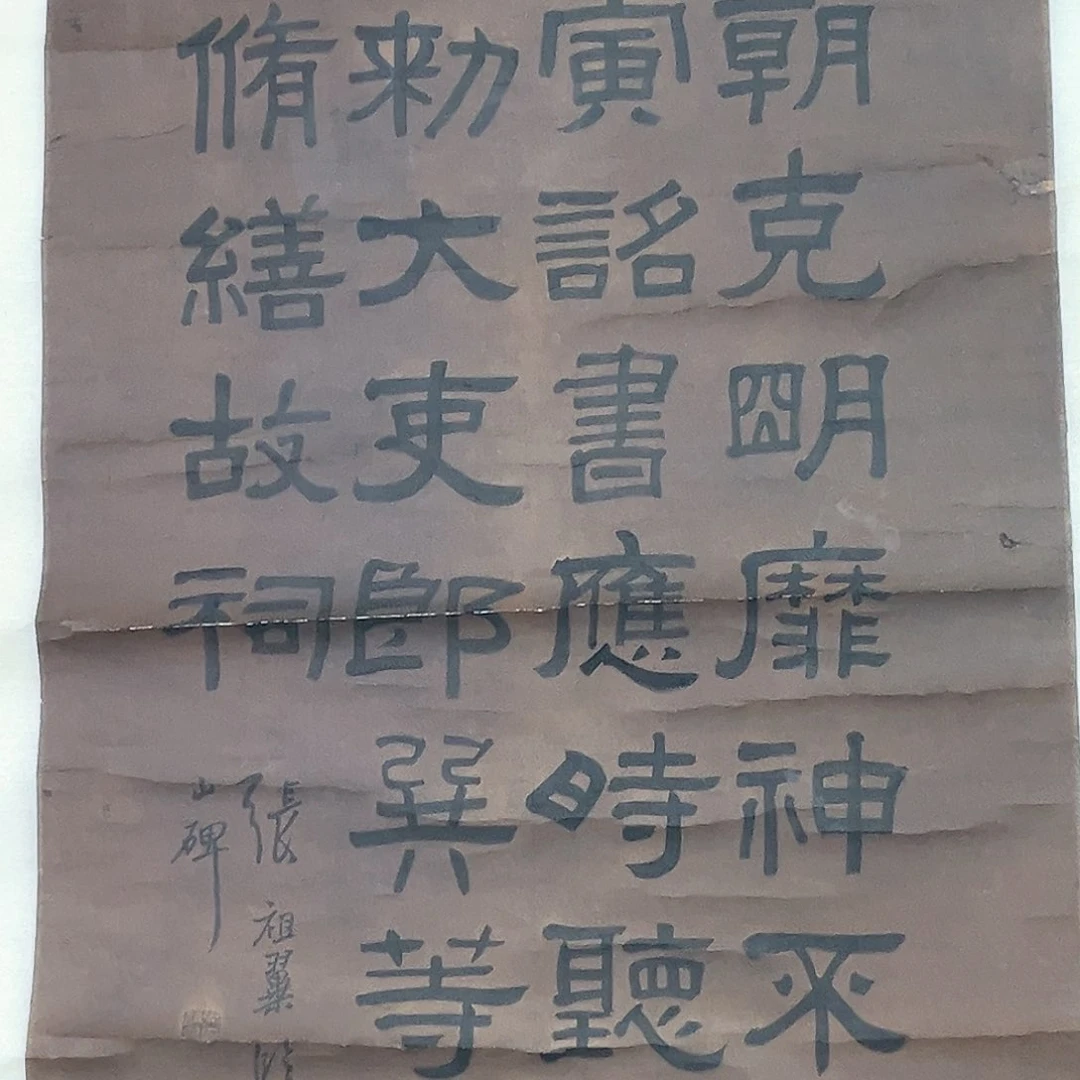 朝克朙靡神不
寅詔書應時聽
勑大吏郎巽等
脩繕故祠
張祖翼臨
山碑